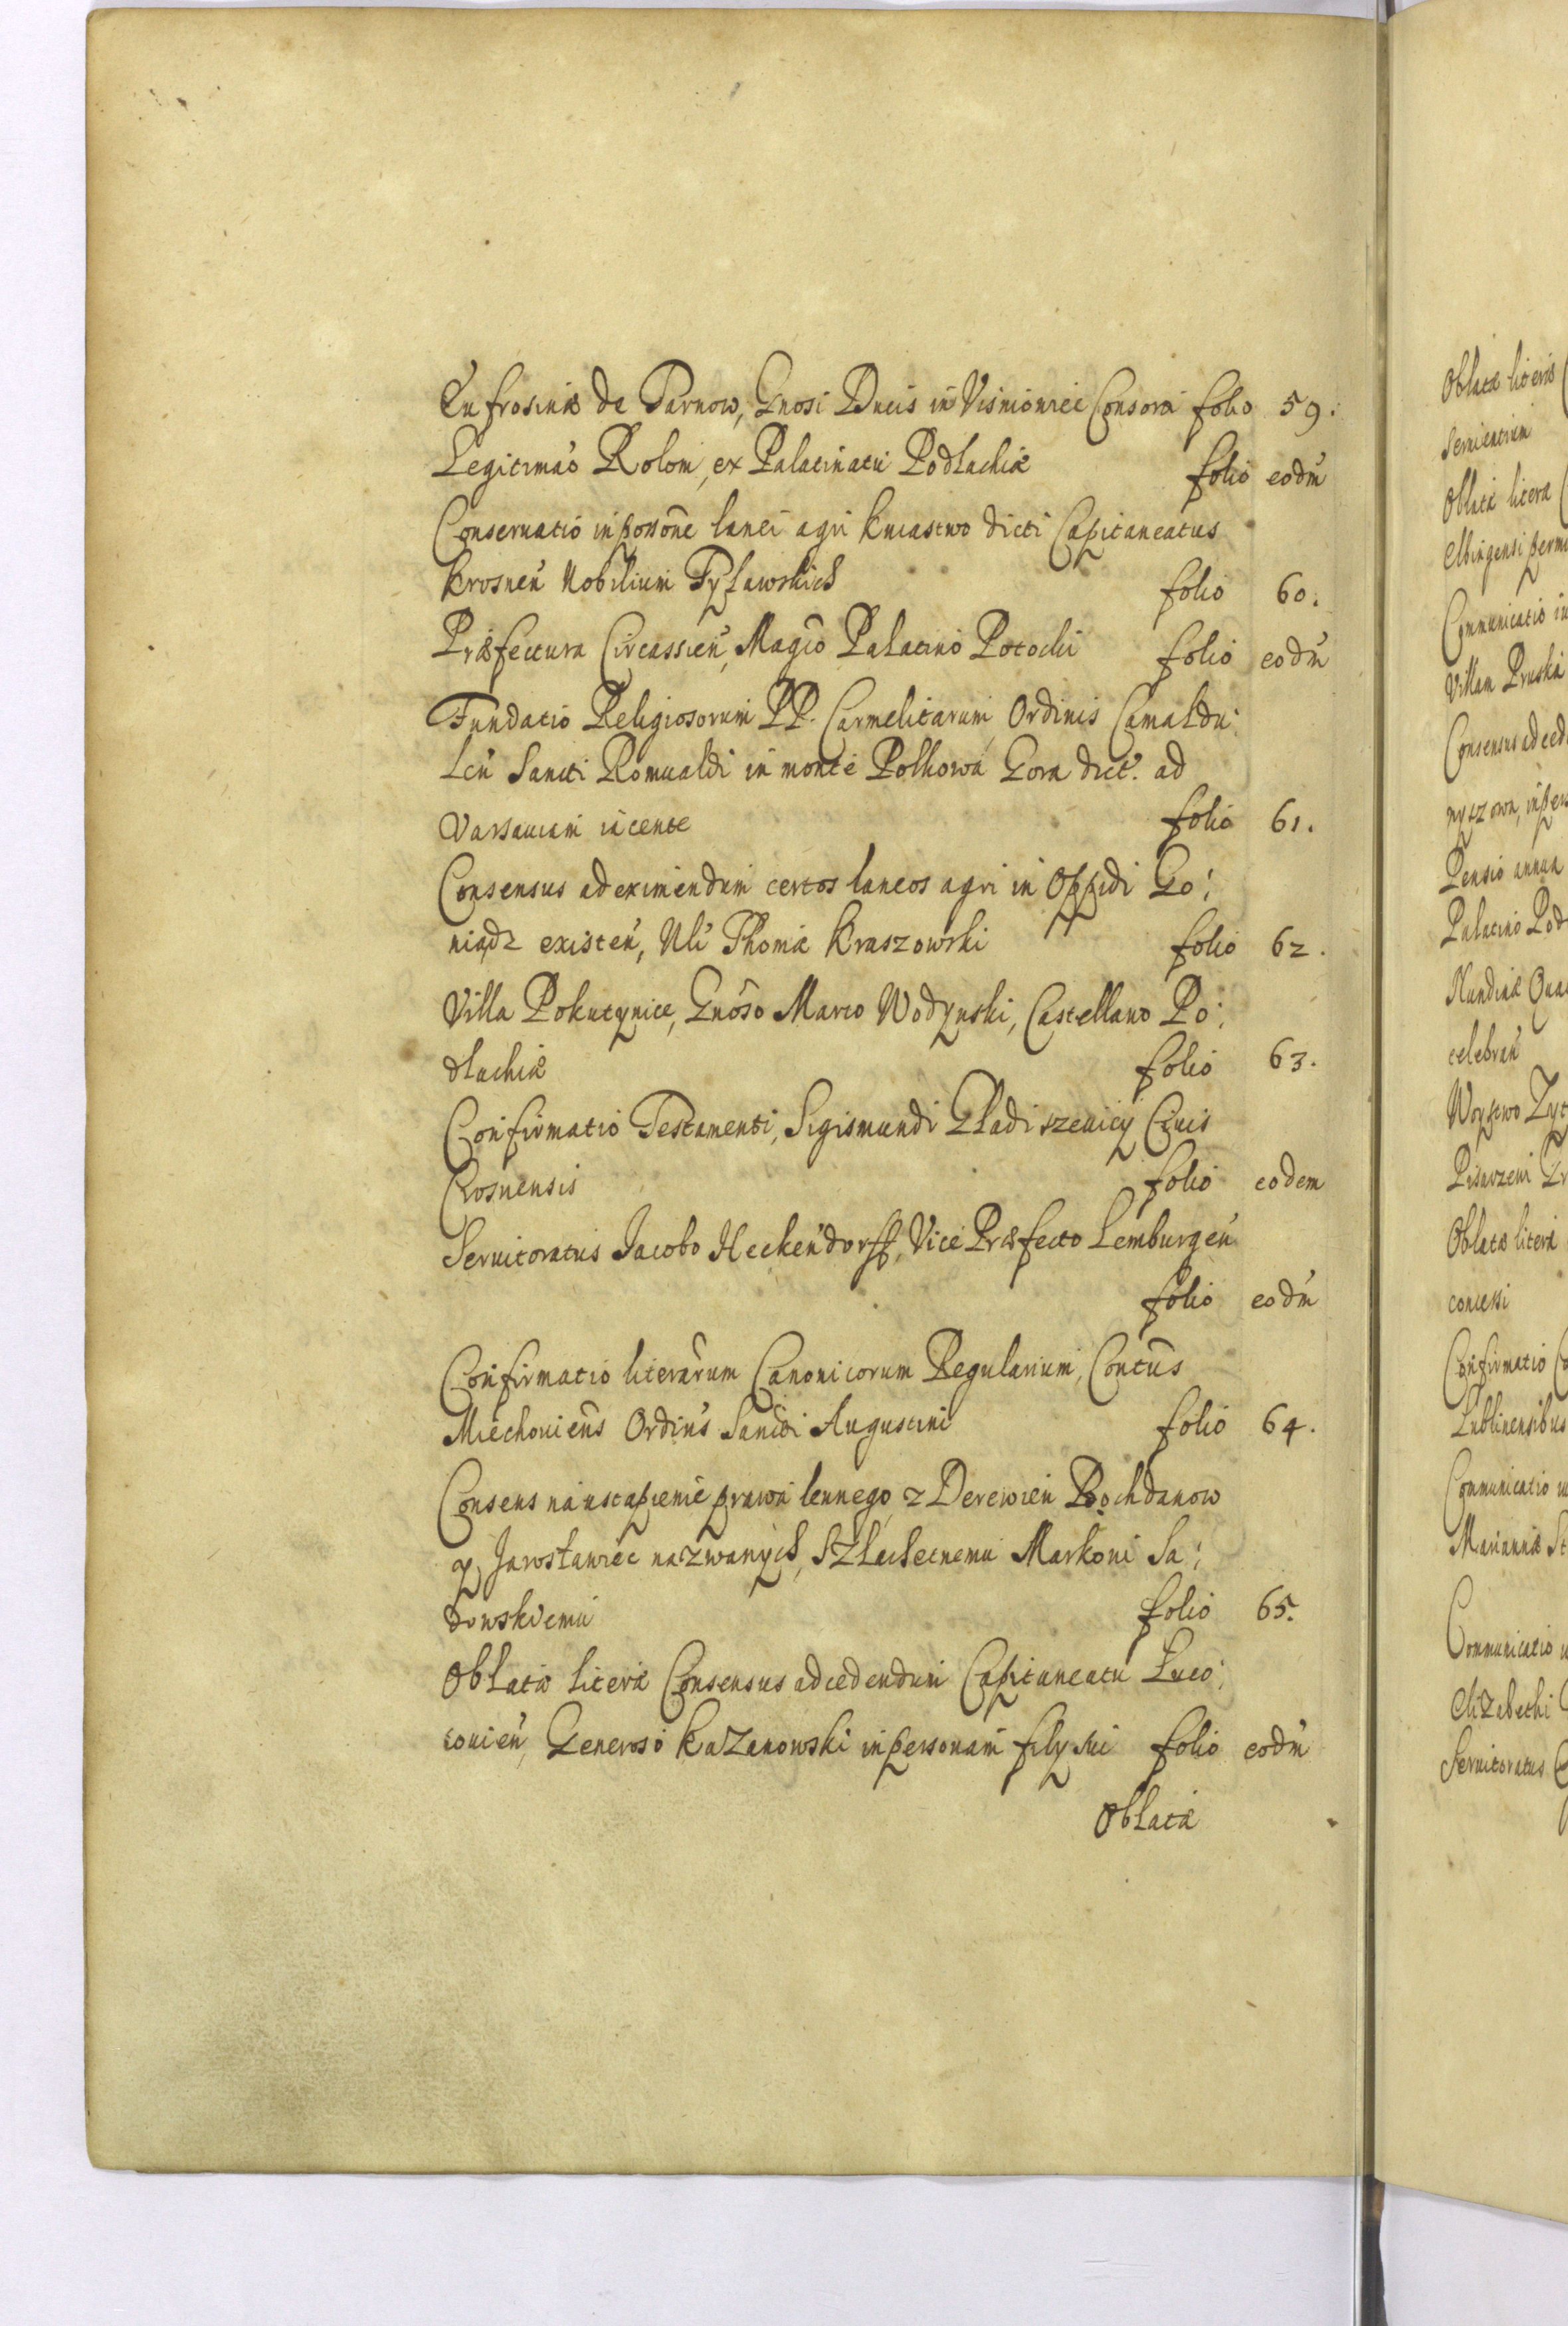 Eufrosinæ de Tarnow, Gnosi Ducis in Visniowiec Consorti folio 59.
Legitima'o Rolom, ex Palatinatu Podlachiæ folio eodm̄
Conseruatio in possone lanei agri kniastwo dicti Capitaneatus
Krosnen̄ Nobilium Tylawskich folio 60.
Præfectura Circassien̄, Magco Palatino Potocki folio eodm̄
Fundatio Religiosorum PP. Carmelitarum, Ordinis Camaldu:
len̄ Sancti Romualdi in monte Polkowa Gora dict. ad
Varsauiam iacente folio 61.
Consensus ad eximendum certos laneos agri in Oppidi Go:
niądz existen̄, Nli Thomæ Kraszowski folio 62.
Villa Pokutynice, Gnoso Marco Wodynski, Castellano Po:
dlachiæ folio 63.
Confirmatio Testamenti, Sigismundi Gladiszevicy Ciuis
Crosnensis folio eodem
Seruitoratus Jacobo Heckendorff, Vice Præfecto Lemburgen̄
folio eodm̄
Confirmatio literarum Canonicorum Regularium, Contūs
Miechouiens̄ Ordinis Sancti Augustini folio 64.
Consens na ustąpienie prawa lennego z Derewien Bochdanow
y Jarosławiec nazwanych, Szlachetnemu Markoni Sa:
dowskiemu folio 65.
Oblatæ literæ Consensus ad cedendum Capitaneatu Luco:
rouien̄, Generoso Kazanowski in personam filÿ sui folio eodm̄
Oblatæ
Oblatæ literis
Seruientium
Oblatæ literæ
Elbingensi
Communicatio
Villam Pruska
Consensus ad ced
Pensio annua
Palatino Pod
Nundinæ
celebran̄
Pisarzeui
Oblatæ literæ
concessi
Confirmatio
Lublinensibus
Communicatio
Mariannæ St
Communicatio
Elizabethi
Seruitoratus